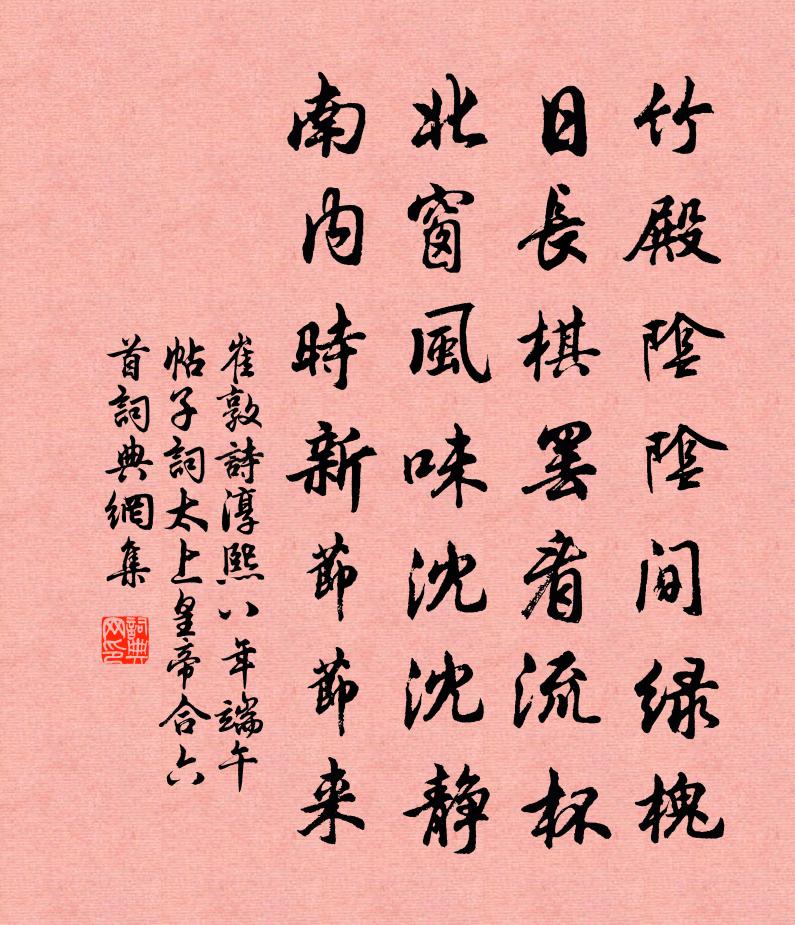 竹殿陰陰间緑槐
日長棋罢看流杯
北窗風味沈沈静
南内時新節節来
崔敦詩淳熙八年端午
帖子詞太上皇帝合六
首詞典網集
詞典網印